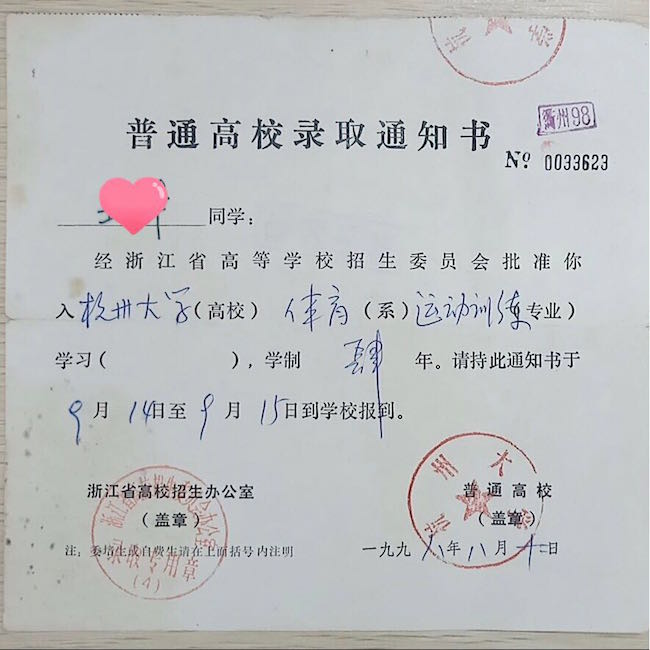 普通高校录取通知书
衢州98
№ 0033623
同学:
经浙江省高等学校招生委员会批准你
入杭州大学(高校) 体育(系)运动训练专业)
学习( ),学制 肆 年。请持此通知书于
9月14日至9月15日到学校报到。
浙江省高校招生办公室
(盖章)
普通高校
(盖章)
注:委培生或自费生请在上面括号内注明
一九九八年八月十日
杭州大学
录取专用章
(4)